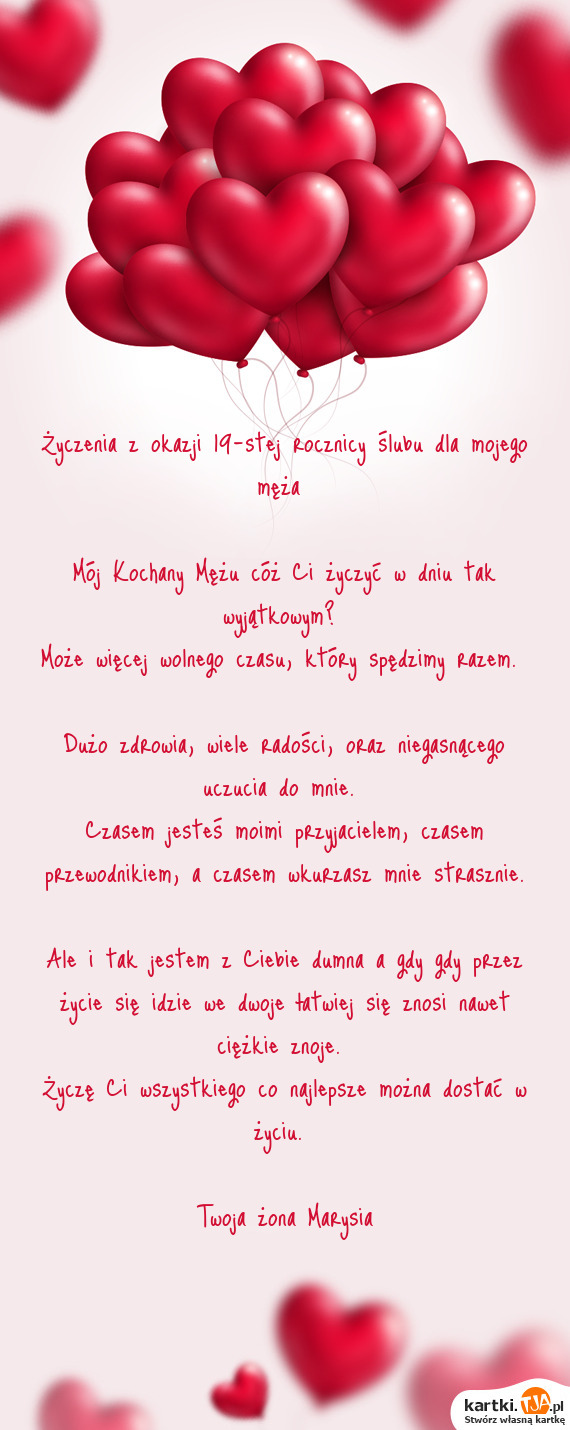 Życzenia z okazji 19-stej rocznicy ślubu dla mojego
męża
Mój Kochany Mężu cóż Ci życzyć w dniu tak
wyjątkowym?
Może więcej wolnego czasu, który spędzimy razem.
Dużo zdrowia, wiele radości, oraz niegasnącego
uczucia do mnie.
Czasem jesteś moimi przyjacielem, czasem
przewodnikiem, a czasem wkurzasz mnie strasznie.
Ale i tak jestem z Ciebie dumna a gdy gdy przez
życie się idzie we dwoje łatwiej się znosi nawet
ciężkie znoje.
Życzę Ci wszystkiego co najlepsze można dostać w
życiu.
Twoja żona Marysia
kartki.TJA.pl
Stwórz własną kartkę